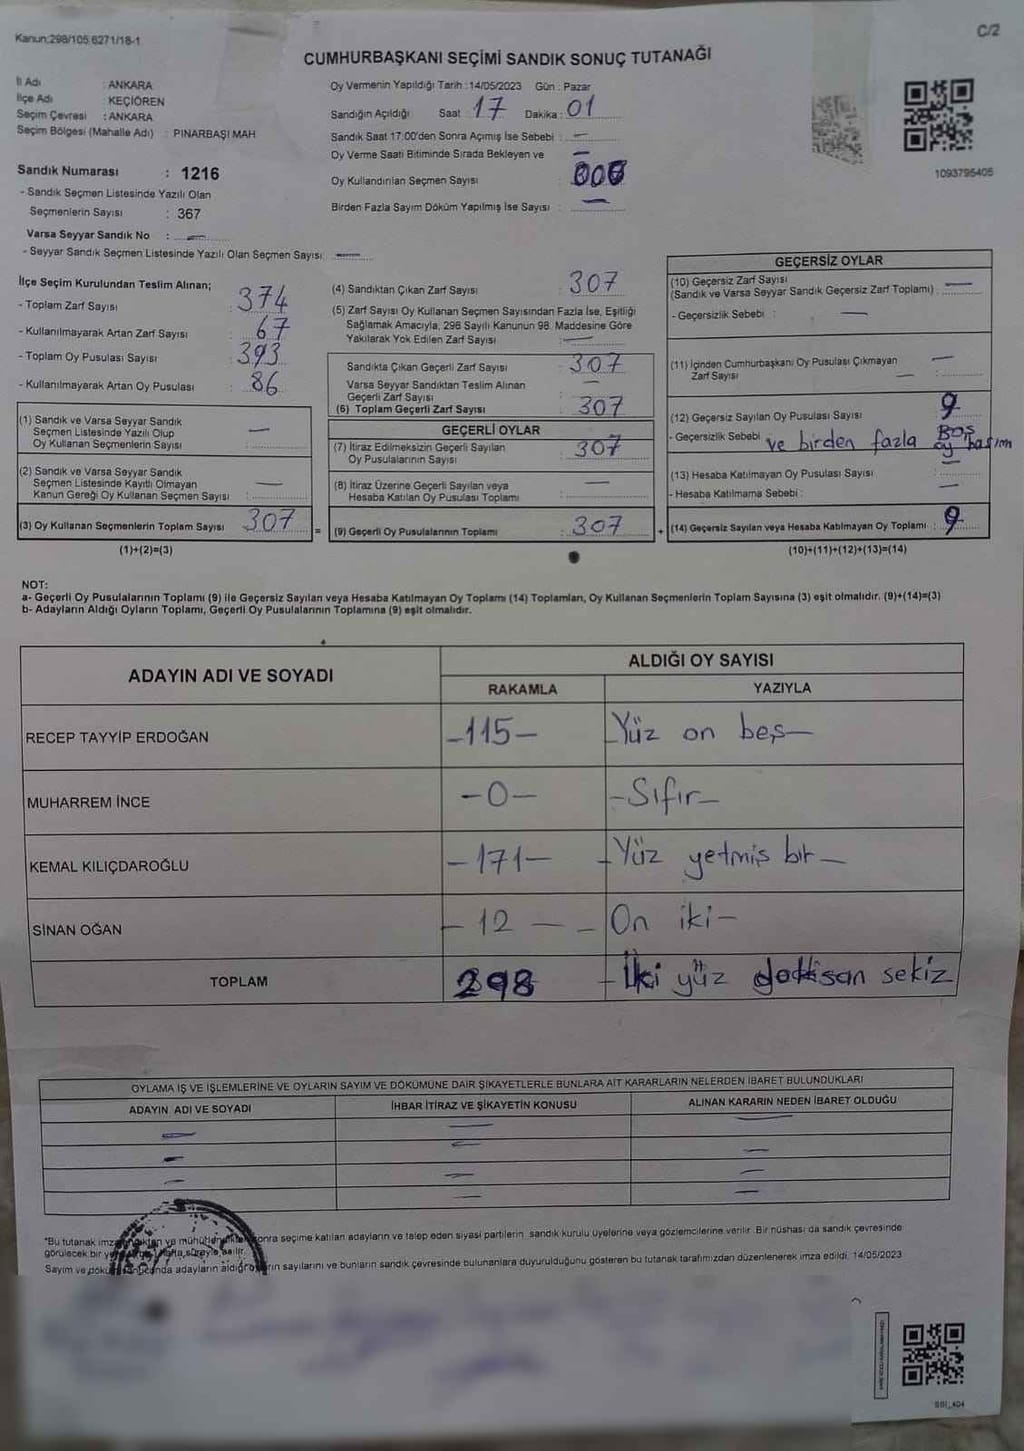 Kanun:298/105 6271/18-1
C/2
CUMHURBAŞKANI SEÇİMİ SANDIK SONUÇ TUTANAĞI
İl Adı : ANKARA
İlçe Adı : KEÇİÖREN
Seçim Çevresi : ANKARA
Seçim Bölgesi (Mahalle Adı) : PINARBAŞI MAH
Sandık Numarası : 1216
- Sandık Seçmen Listesinde Yazılı Olan
Seçmenlerin Sayısı : 367
Varsa Seyyar Sandık No :
- Seyyar Sandık Seçmen Listesinde Yazılı Olan Seçmen Sayısı:
Oy Vermenin Yapıldığı Tarih :14/05/2023 Gün : Pazar
Sandığın Açıldığı Saat 17 Dakika : 01
Sandık Saat 17:00'den Sonra Açımış İse Sebebi : —
Oy Verme Saati Bitiminde Sırada Bekleyen ve —
Oy Kullandırılan Seçmen Sayısı :
Birden Fazla Sayım Döküm Yapılmış İse Sayısı : —
1093795405
İlçe Seçim Kurulundan Teslim Alınan;
- Toplam Zarf Sayısı : 374
- Kullanılmayarak Artan Zarf Sayısı : 67
- Toplam Oy Pusulası Sayısı : 393
- Kullanılmayarak Artan Oy Pusulası : 86
(1) Sandık ve Varsa Seyyar Sandık
Seçmen Listesinde Yazılı Olup
Oy Kullanan Seçmenlerin Sayısı : —
(2) Sandık ve Varsa Seyyar Sandık
Seçmen Listesinde Kayıtlı Olmayan
Kanun Gereği Oy Kullanan Seçmen Sayısı : —
(3) Oy Kullanan Seçmenlerin Toplam Sayısı : 307 =
(1)+(2)=(3)
(4) Sandıktan Çıkan Zarf Sayısı : 307
(5) Zarf Sayısı Oy Kullanan Seçmen Sayısından Fazla İse, Eşitliği
Sağlamak Amacıyla, 298 Sayılı Kanunun 98. Maddesine Göre
Yakılarak Yok Edilen Zarf Sayısı : —
Sandıkta Çıkan Geçerli Zarf Sayısı : 307
Varsa Seyyar Sandıktan Teslim Alınan
Geçerli Zarf Sayısı : —
(6) Toplam Geçerli Zarf Sayısı : 307
GEÇERLİ OYLAR
(7) İtiraz Edilmeksizin Geçerli Sayılan
Oy Pusulalarının Sayısı : 307
(8) İtiraz Üzerine Geçerli Sayılan veya
Hesaba Katılan Oy Pusulası Toplamı : —
(9) Geçerli Oy Pusulalarının Toplamı : 307 +
GEÇERSİZ OYLAR
(10) Geçersiz Zarf Sayısı
(Sandık ve Varsa Seyyar Sandık Geçersiz Zarf Toplamı) : —
- Geçersizlik Sebebi : —
(11) İçinden Cumhurbaşkanı Oy Pusulası Çıkmayan
Zarf Sayısı — : —
(12) Geçersiz Sayılan Oy Pusulası Sayısı : 9
- Geçersizlik Sebebi : Boş
ve birden fazla oy basım
(13) Hesaba Katılmayan Oy Pusulası Sayısı : —
- Hesaba Katılmama Sebebi : —
(14) Geçersiz Sayılan veya Hesaba Katılmayan Oy Toplamı : 9
(10)+(11)+(12)+(13)=(14)
NOT:
a- Geçerli Oy Pusulalarının Toplamı (9) ile Geçersiz Sayılan veya Hesaba Katılmayan Oy Toplamı (14) Toplamları, Oy Kullanan Seçmenlerin Toplam Sayısına (3) eşit olmalıdır. (9)+(14)=(3)
b- Adayların Aldığı Oyların Toplamı, Geçerli Oy Pusulalarının Toplamına (9) eşit olmalıdır.
ADAYIN ADI VE SOYADI
ALDIĞI OY SAYISI
RAKAMLA YAZIYLA
RECEP TAYYİP ERDOĞAN -115- Yüz on beş-
MUHARREM İNCE -0- -Sıfır-
KEMAL KILIÇDAROĞLU -171- -Yüz yetmiş bir-
SİNAN OĞAN -12- -On iki-
TOPLAM 298 -İki yüz doksan sekiz
OYLAMA İŞ VE İŞLEMLERİNE VE OYLARIN SAYIM VE DÖKÜMÜNE DAİR ŞİKAYETLERLE BUNLARA AİT KARARLARIN NELERDEN İBARET BULUNDUKLARI
ADAYIN ADI VE SOYADI İHBAR İTİRAZ VE ŞİKAYETİN KONUSU ALINAN KARARIN NEDEN İBARET OLDUĞU
*Bu tutanak sonra seçime katılan adayların ve talep eden siyasi partilerin sandık kurulu üyelerine veya gözlemcilerine verilir. Bir nüshası da sandık çevresinde
görülecek bir asılır.
Sayım ve adayların sayılarını ve bunların sandık çevresinde bulunanlara duyurulduğunu gösteren bu tutanak tarafımızdan düzenlenerek imza edildi. 14/05/2023